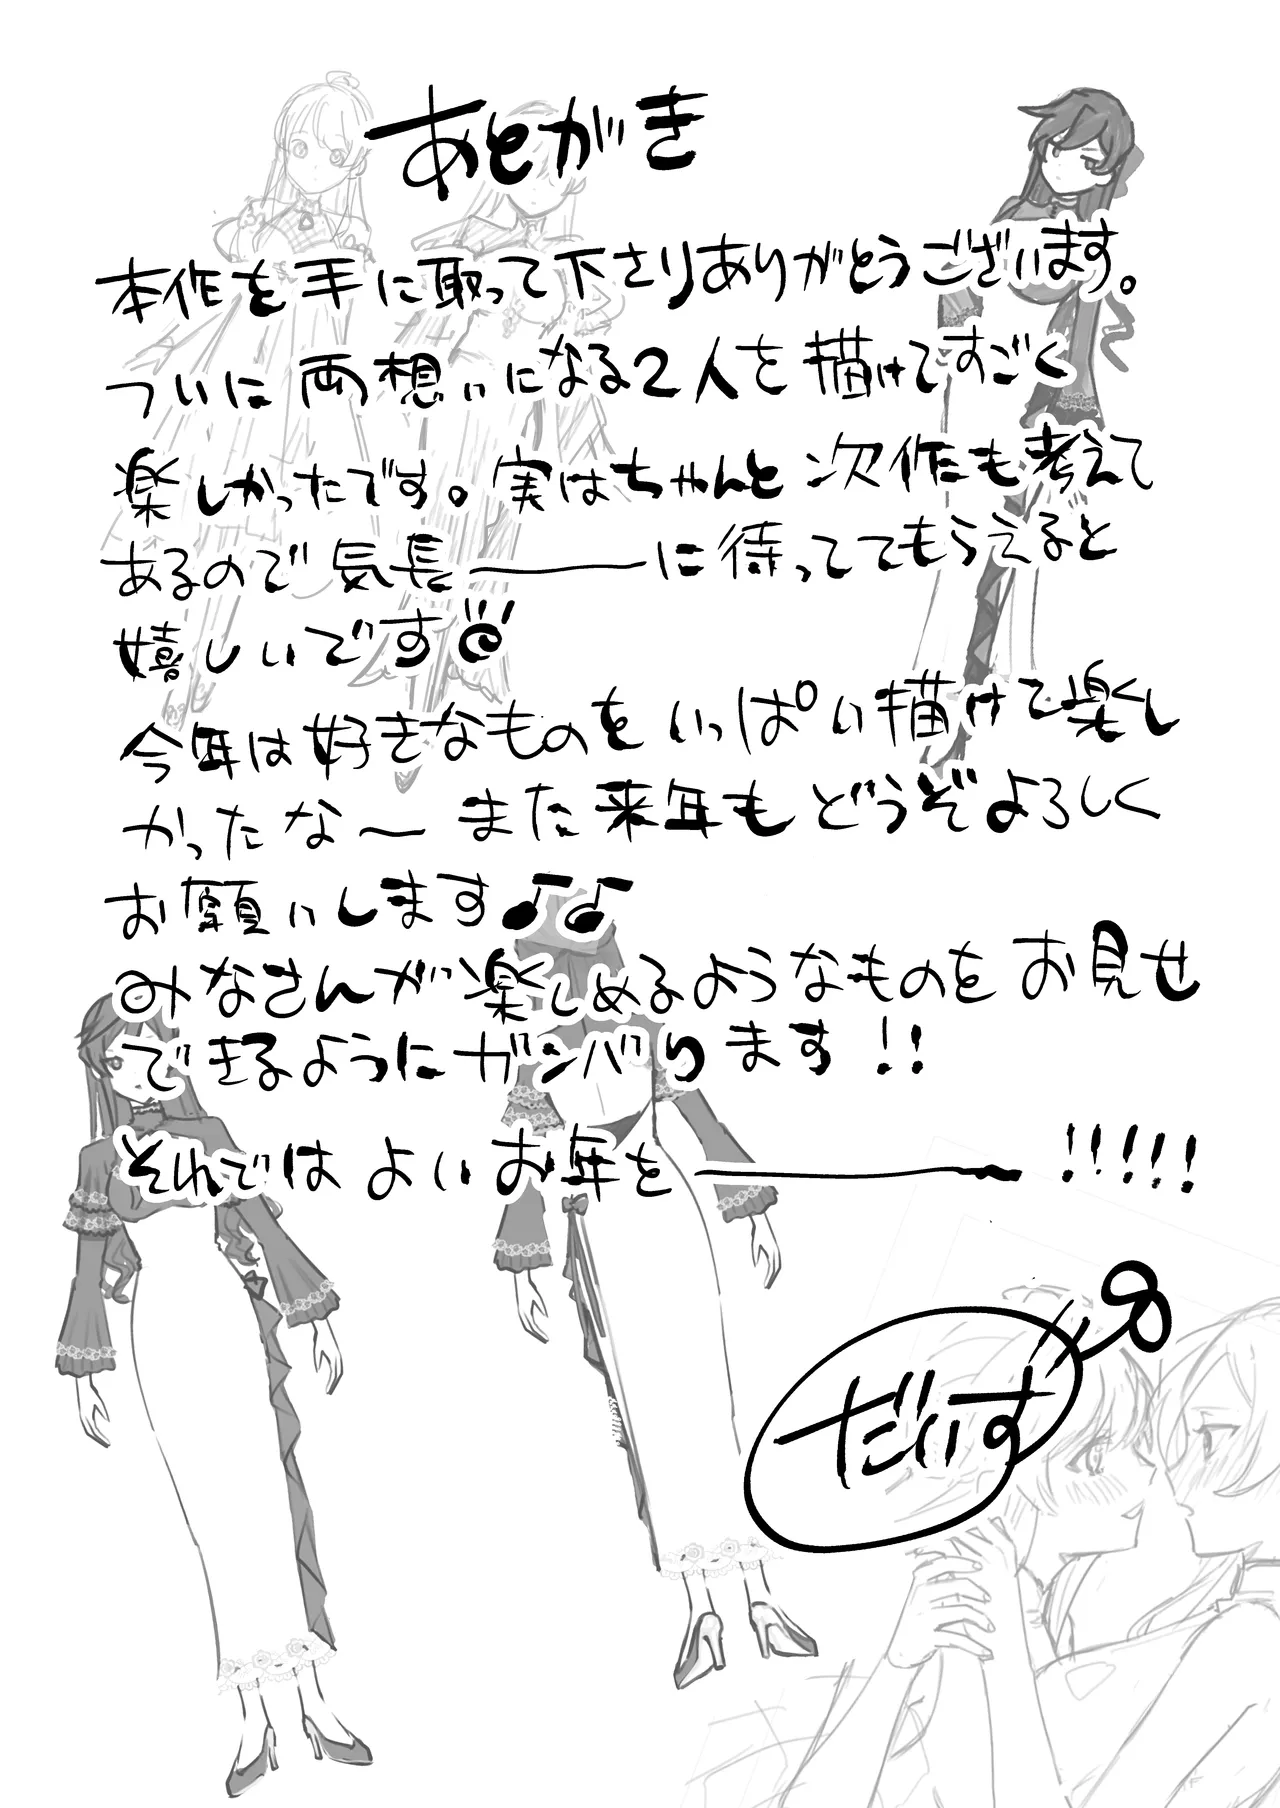 あとがき
本作を手に取って下さりありがとうございます。
ついに両想いになる2人を描けてすごく
楽しかったです。実はちゃんと次作も考えて
あるので気長――――に待っててもらえると
嬉しいです
今年は好きなものをいっぱい描けて楽し
かったな〜また来年もどうぞよろしく
お願いします♪♪
みなさんが楽しめるようなものをお見せ
できるようにガンバります!!
それではよいお年を――――――!!!!!
だいす